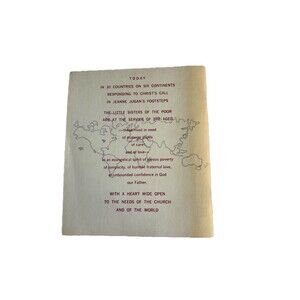 TODAY
IN 30 COUNTRIES ON SIX CONTINENTS
RESPONDING TO CHRIST'S CALL
IN JEANNE JUGAN'S FOOTSTEPS
THE LITTLE SISTERS OF THE POOR
ARE AT THE SERVICE OF THE AGED
in need
of
of care
and of love
in an evangelical spirit of joyous poverty
of simplicity, of humble fraternal love,
of unbounded confidence in God
our Father.
WITH A HEART WIDE OPEN
TO THE NEEDS OF THE CHURCH
AND OF THE WORLD